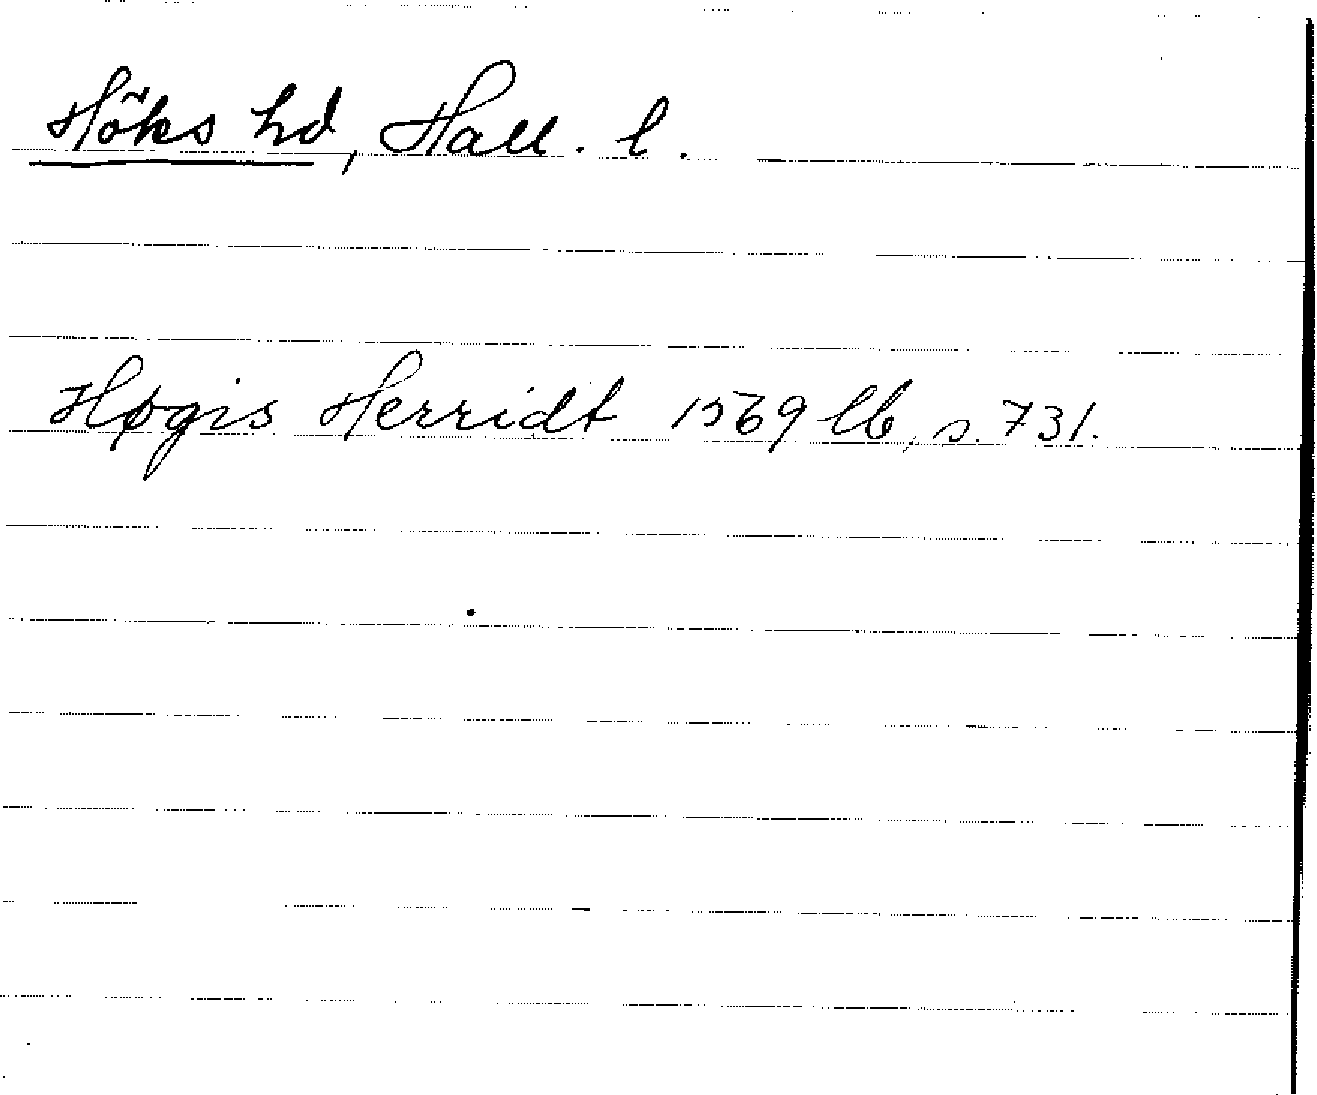 Höks hd, Hall. l.
Høgis Herridt 1569 lb, s. 731.